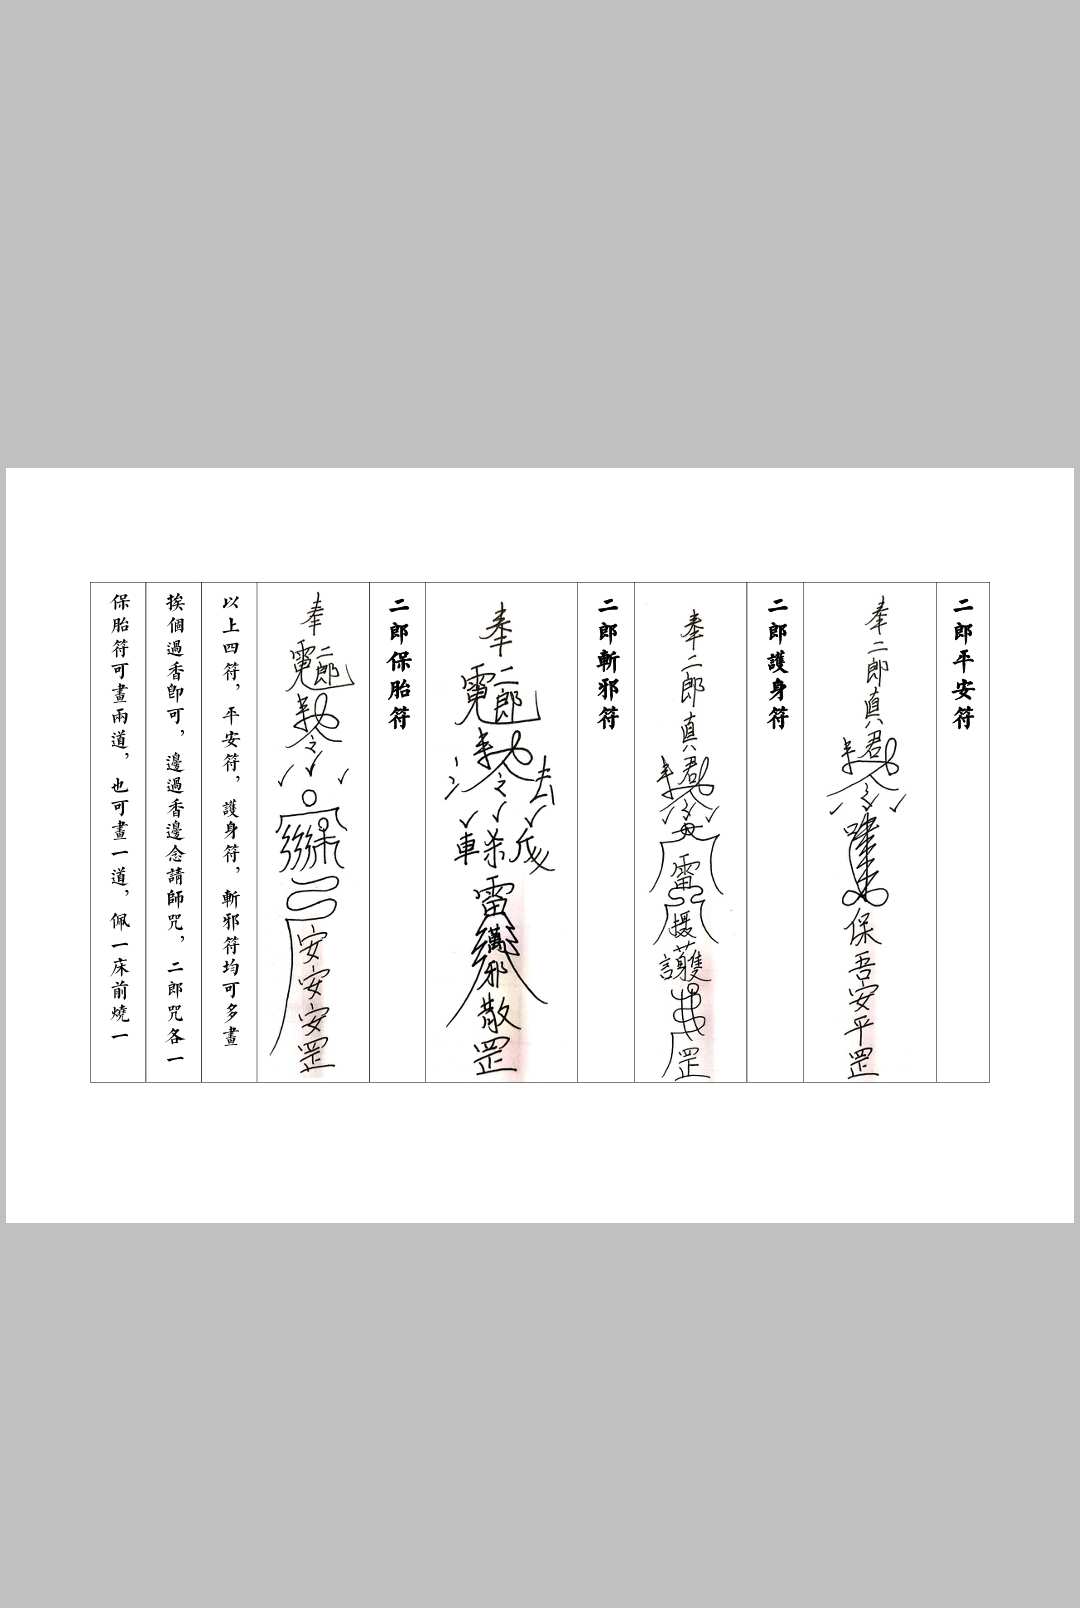 二郎平安符
奉二郎真君敕令
保吾安平罡
二郎護身符
奉二郎真君敕令
雷
摄
護
罡
二郎斬邪符
奉
二郎
敕令
雷
萬邪散罡
二郎保胎符
奉
二郎
敕令
安安安罡
以上四符，平安符，護身符，斬邪符均可多畫
挨個過香即可，邊過香邊念請師咒，二郎咒各一
保胎符可畫兩道，也可畫一道，佩一床前燒一